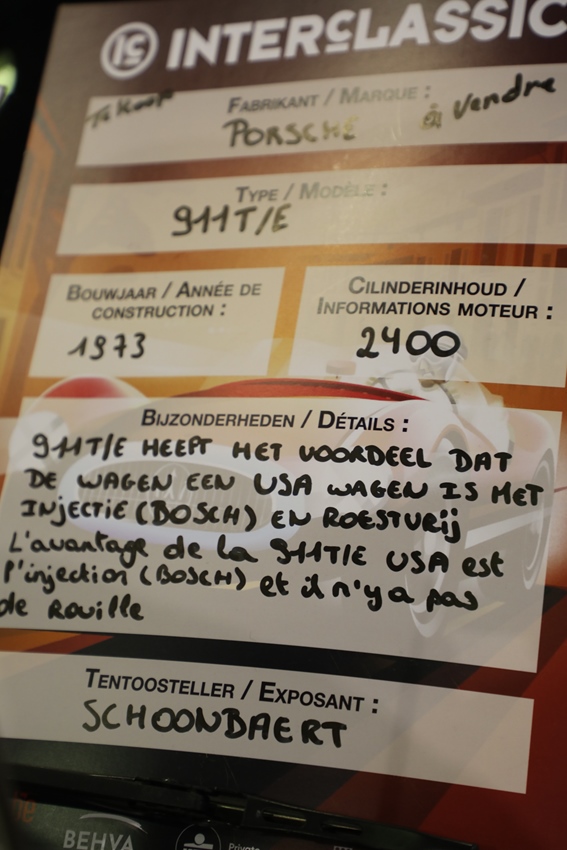 IC INTERCLASSIC
Te Koop FABRIKANT / MARQUE : à Vendre
PORSCHE
TYPE / MODÈLE :
911T/E
BOUWJAAR / ANNÉE DE
CONSTRUCTION :
1973
CILINDERINHOUD /
INFORMATIONS MOTEUR :
2400
BIJZONDERHEDEN / DÉTAILS :
911T/E HEEFT HET VOORDEEL DAT
DE WAGEN EEN USA WAGEN IS MET
INJECTIE (BOSCH) EN ROESTVRIJ
L'avantage de la 911T/E USA est
l'injection (BOSCH) et il n'y a pas
de Rouille
TENTOOSTELLER / EXPOSANT :
SCHOONBAERT
BEHVA
Private